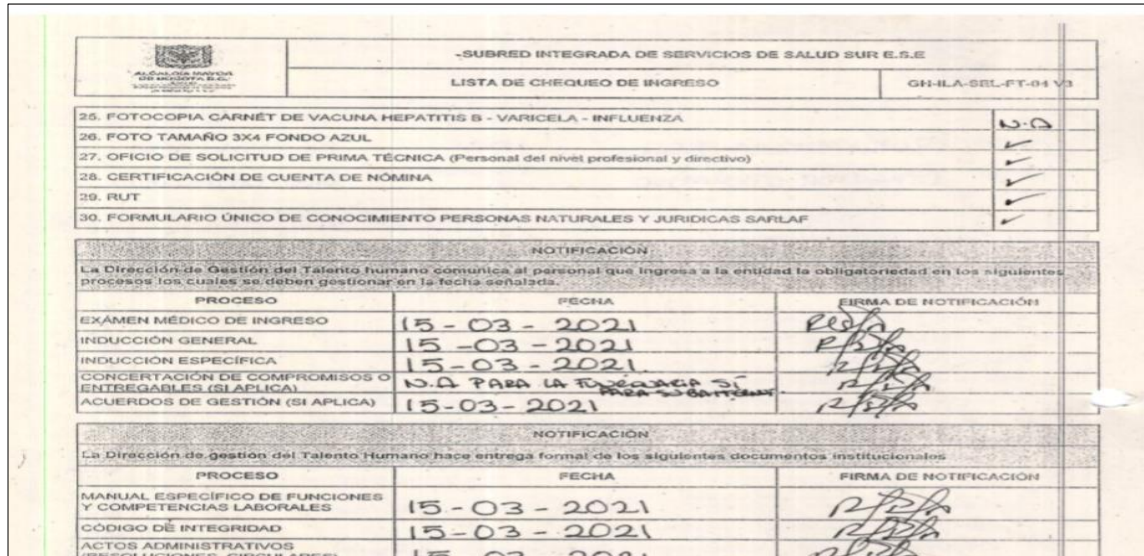 -SUBRED INTEGRADA DE SERVICIOS DE SALUD SUR E.S.E
ALCALDÍA MAYOR
DE BOGOTÁ D.C.
LISTA DE CHEQUEO DE INGRESO
GH-ILA-SEL-FT-04 V3
25. FOTOCOPIA CARNÉT DE VACUNA HEPATITIS B - VARICELA - INFLUENZA N.A
26. FOTO TAMAÑO 3X4 FONDO AZUL ✓
27. OFICIO DE SOLICITUD DE PRIMA TÉCNICA (Personal del nivel profesional y directivo) ✓
28. CERTIFICACIÓN DE CUENTA DE NÓMINA ✓
29. RUT ✓
30. FORMULARIO ÚNICO DE CONOCIMIENTO PERSONAS NATURALES Y JURIDICAS SARLAF ✓
NOTIFICACIÓN
La Dirección de Gestión del Talento humano comunica al personal que ingresa a la entidad la obligatoriedad en los siguientes
procesos los cuales se deben gestionar en la fecha señalada.
PROCESO FECHA FIRMA DE NOTIFICACIÓN
EXÁMEN MÉDICO DE INGRESO 15-03-2021
INDUCCIÓN GENERAL 15-03-2021
INDUCCIÓN ESPECÍFICA 15-03-2021.
CONCERTACIÓN DE COMPROMISOS O
ENTREGABLES (SI APLICA) N.A PARA LA SÍ
PARA
ACUERDOS DE GESTIÓN (SI APLICA) 15-03-2021
NOTIFICACIÓN
La Dirección de gestión del Talento Humano hace entrega formal de los siguientes documentos institucionales
PROCESO FECHA FIRMA DE NOTIFICACIÓN
MANUAL ESPECÍFICO DE FUNCIONES
Y COMPETENCIAS LABORALES 15-03-2021
CÓDIGO DE INTEGRIDAD 15-03-2021
ACTOS ADMINISTRATIVOS
(RESOLUCIONES, CIRCULARES) 15-03-2021